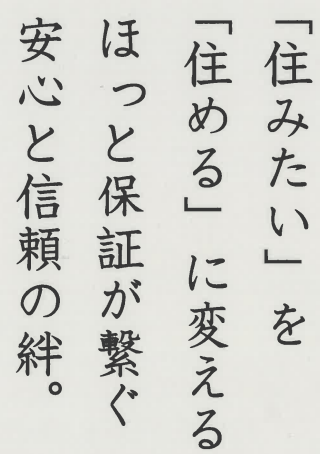 「住みたい」を
「住める」に変える
ほっと保証が繋ぐ
安心と信頼の絆。